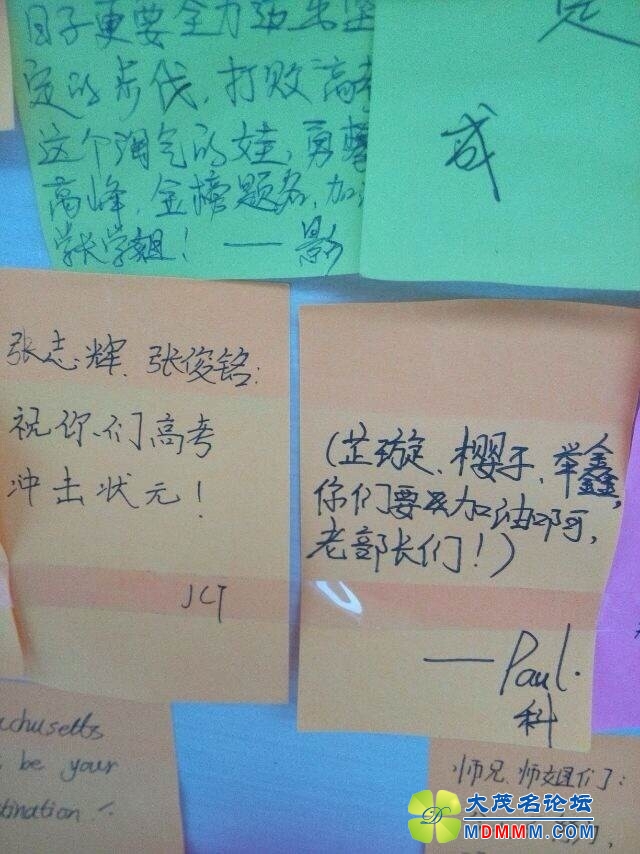 日子更要全力迈出坚
定的步伐,打败"高考
这个淘气的娃,勇攀
高峰,金榜题名,加油
学长学姐! ——影
成
张志辉、张俊铭:
祝你们高考
冲击状元!
JCT
(芷璇、樱子、举鑫,
你们要加油啊,
老部长们!)
——Paul.
科
achusetts
be your
stination
师兄、师姐们:
大茂名论坛
MDMMM.COM